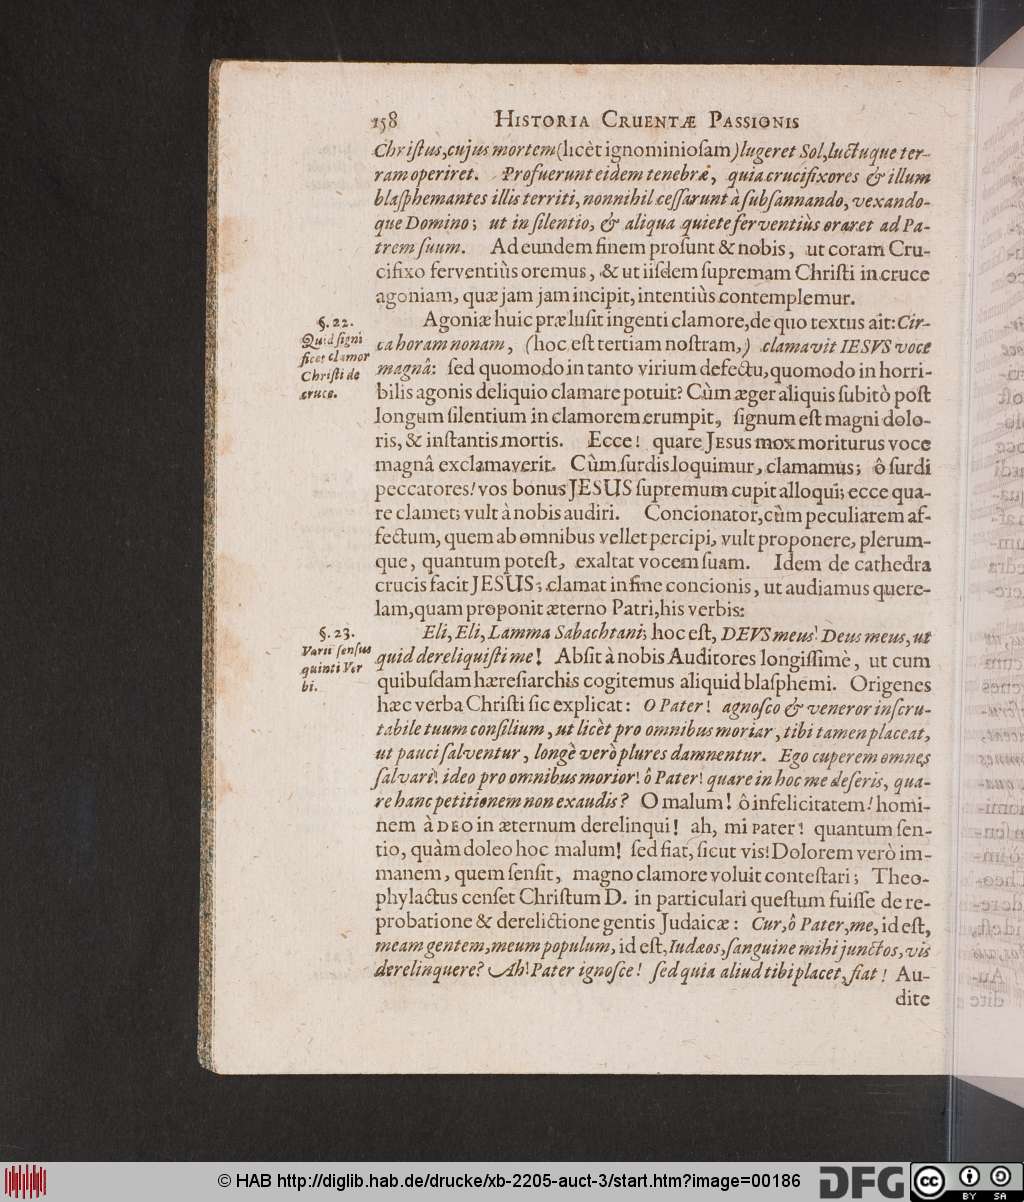 158 HISTORIA CRUENTÆ PASSIONIS
Chriſtus, cujus mortem (licèt ignominioſam) lugeret Sol, luctuque ter-
ram operiret. Profuerunt eidem tenebræ, quia crucifixores & illum
blaſphemantes illis territi, nonnihil ceſſarunt à ſubſannando, vexando-
que Domino; ut in ſilentio, & aliqua quiete ferventiùs oraret ad Pa-
trem ſuum. Ad eundem finem proſunt & nobis, ut coram Cru-
cifixo ferventiùs oremus, & ut iiſdem ſupremam Chriſti in cruce
agoniam, quæ jam jam incipit, intentiùs contemplemur.
§. 22.
Quid ſigni
ficet clamor
Chriſti de
cruce.
Agoniæ huic præluſit ingenti clamore, de quo textus ait: Cir-
ca horam nonam, (hoc eſt tertiam noſtram,) clamavit IESVS voce
magnâ: ſed quomodo in tanto virium defectu, quomodo in horri-
bilis agonis deliquio clamare potuit? Cùm æger aliquis ſubitò poſt
longum ſilentium in clamorem erumpit, ſignum eſt magni dolo-
ris, & inſtantis mortis. Ecce! quare JESUS mox moriturus voce
magnâ exclamaverit. Cùm ſurdis loquimur, clamamus; ô ſurdi
peccatores! vos bonus JESUS ſupremum cupit alloqui; ecce qua-
re clamet; vult à nobis audiri. Concionator, cùm peculiarem af-
fectum, quem ab omnibus vellet percipi, vult proponere, plerum-
que, quantum poteſt, exaltat vocem ſuam. Idem de cathedra
crucis facit JESUS; clamat in fine concionis, ut audiamus quere-
lam, quam proponit æterno Patri, his verbis:
§. 23.
Varii ſenſus
quinti Ver
bi.
Eli, Eli, Lamma Sabachtani; hoc eſt, DEVS meus! Deus meus, ut
quid dereliquiſti me! Abſit à nobis Auditores longiſſimè, ut cum
quibuſdam hæreſiarchis cogitemus aliquid blaſphemi. Origenes
hæc verba Chriſti ſic explicat: O Pater! agnoſco & veneror inſcru-
tabile tuum conſilium, ut licèt pro omnibus moriar, tibi tamen placeat,
ut pauci ſalventur, longè verò plures damnentur. Ego cuperem omnes
ſalvari! ideo pro omnibus morior! ô Pater! quare in hoc me deſeris, qua-
re hanc petitionem non exaudis? O malum! ô infelicitatem! homi-
nem à DEO in æternum derelinqui! ah, mi Pater! quantum ſen-
tio, quàm doleo hoc malum! ſed fiat, ſicut vis! Dolorem verò im-
manem, quem ſenſit, magno clamore voluit conteſtari; Theo-
phylactus cenſet Chriſtum D. in particulari queſtum fuiſſe de re-
probatione & derelictione gentis Judaicæ: Cur, ô Pater, me, id eſt,
meam gentem, meum populum, id eſt, Iudæos, ſanguine mihi junctos, vis
derelinquere? Ah! Pater ignoſce! ſed quia aliud tibi placet, fiat! Au-
dite
© HAB http://diglib.hab.de/drucke/xb-2205-auct-3/start.htm?image=00186
DFG
cc BY SA